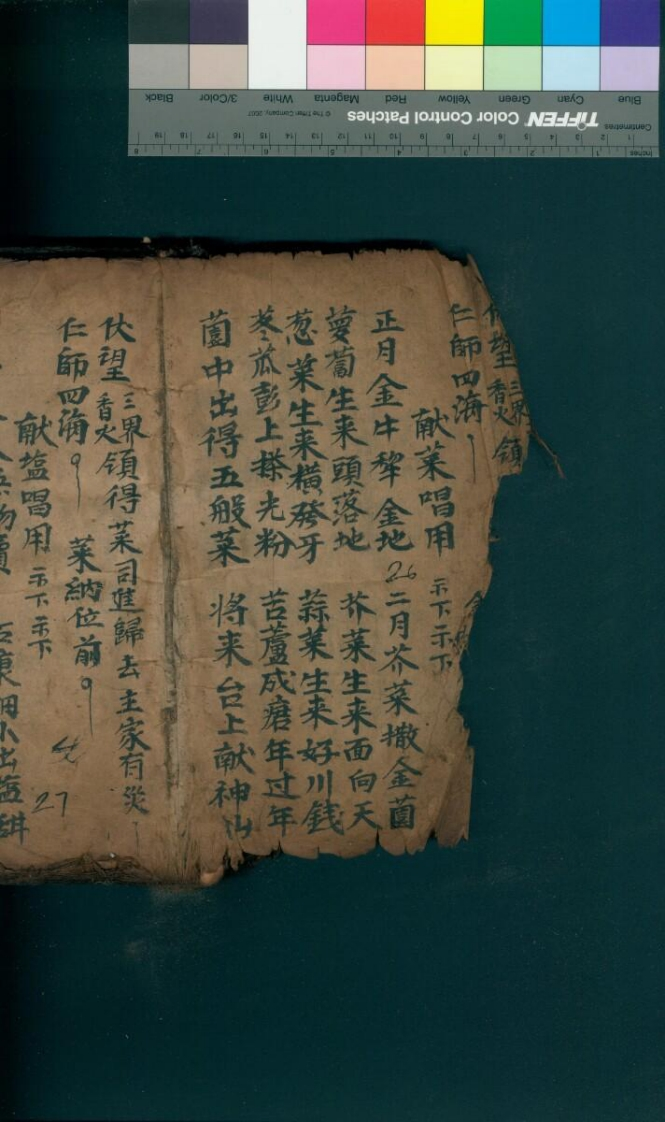 Blue Cyan Green Yellow Red Magenta White 3/Color Black
TIFFEN Color Control Patches © The Tiffen Company, 2007
Centimetres
Inches
伏望 三界香火 領
仁師四海
献菜唱用 示下 示下
正月金牛犂金地 二月芥菜撒金薗
26
蘿蔔生来頭落地 芥菜生来面向天
葱菜生来横發牙 蒜菜生来好川錢
苳瓜彭上搽光粉 苦蘆成磨年过年
薗中出得五般菜 将来台上献神山
伏望 三界香火 領得菜司進歸去主家有災
仁師四海 菜納位前
献塩唱用 示下 示下
27